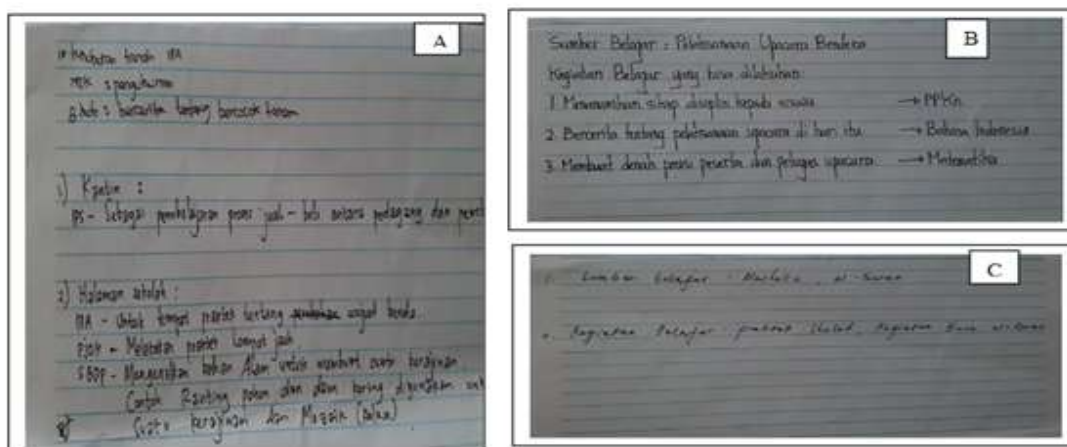 A
IPA
MTK : pengukuran
B.Indo : bercerita tentang bercocok tanam
1) Kantin :
IPS - Sebagai pembelajaran proses jual - beli antara pedagang dan
2) Halaman sekolah :
IPA - Untuk tempat praktek tentang wujud benda
PJOK - Melakukan praktek lompat jauh
SBDP - Mengenalkan bahan Alam untuk membuat suatu kerajinan
Contoh Ranting pohon dan daun kering digunakan
Suatu kerajinan dan Mozaik
B
Sumber Belajar : Pelaksanaan Upacara Bendera
Kegiatan Belajar yang bisa dilakukan:
1. Menanamkan sikap disiplin kepada siswa → PPKn
2. Bercerita tentang pelaksanaan upacara di hari itu → Bahasa Indonesia
3. Membuat denah posisi peserta dan petugas upacara → Matematika
C
Sumber belajar :
Kegiatan Belajar praktek Sholat, Kegiatan